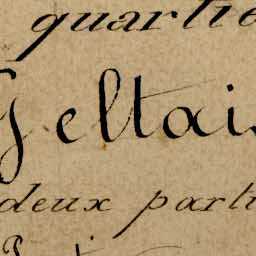 quartie
Geltais
deux parti